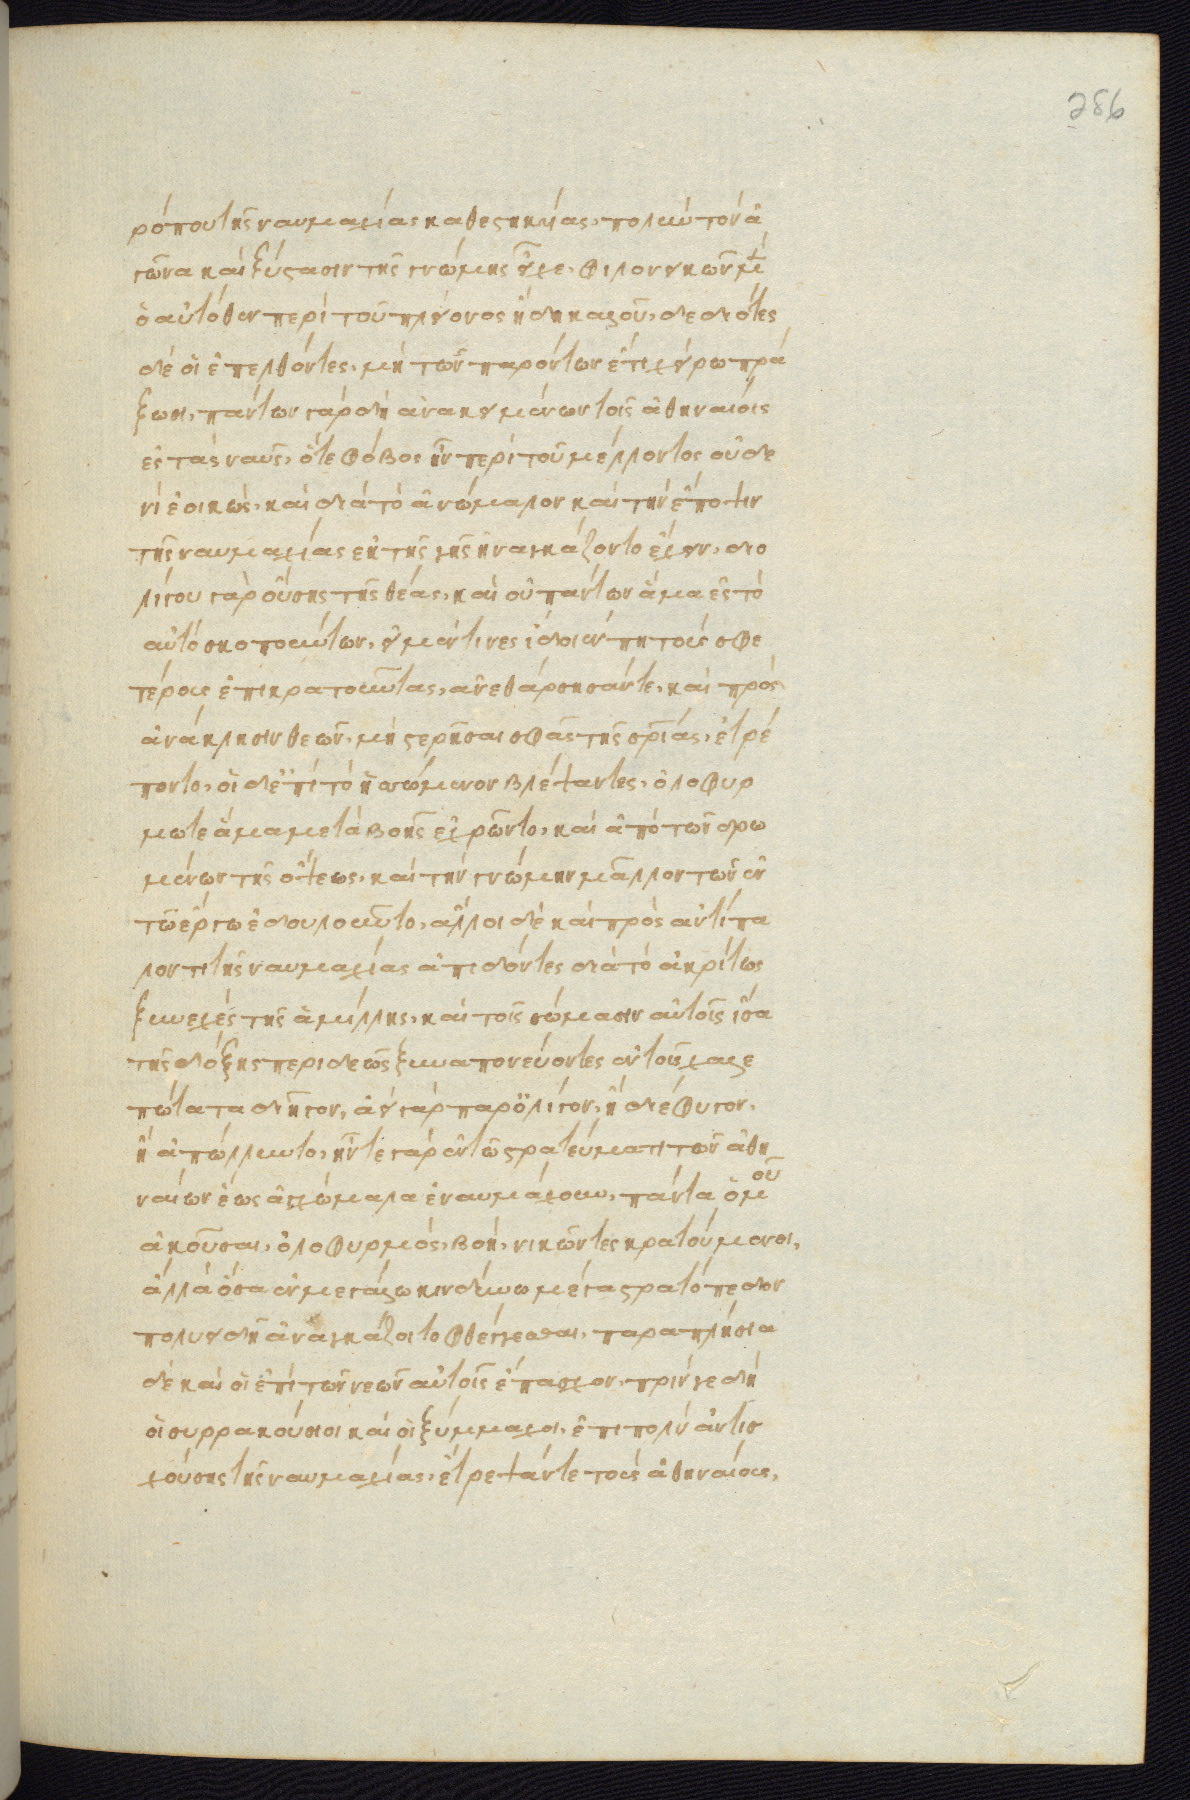 286
ρόπου τῆς ναυμαχίας καθεστηκυίας, πολὺν τὸν ἀ
γῶνα καὶ ξύστασιν τῆς γνώμης εἶχε, φιλονεικῶν μὲν
ὁ αὐτόθεν περὶ τοῦ πλείονος ἤδη καλοῦ, δεδιότες
δὲ οἱ ἐπελθόντες, μὴ τῶν παρόντων ἔτι χείρω πρά
ξωσι, πάντων γὰρ δὴ ἀνακειμένων τοῖς ἀθηναίοις
ἐς τὰς ναῦς, ὅτε φόβος ἦν περὶ τοῦ μέλλοντος οὐδε
νὶ ἐοικὼς, καὶ διὰ τὸ ἀνώμαλον καὶ τὴν ἔποψιν
τῆς ναυμαχίας ἐκ τῆς γῆς ἠναγκάζοντο ἔχειν, διο
λίγου γὰρ οὔσης τῆς θέας, καὶ οὐ πάντων ἅμα ἐς τὸ
αὐτὸ σκοπούντων, εἰ μέν τινες ἴδοιεν πη τοὺς σφε
τέρους ἐπικρατοῦντας, ἀνεθάρσησάν τε, καὶ πρὸς
ἀνάκλησιν θεῶν, μὴ στερῆσαι σφᾶς τῆς σρίας, ἐτρέ
ποντο, οἱ δ' ἐπὶ τὸ ἡσσώμενον βλέψαντες, ὀλοφυρ
μῶτε ἅμα μετὰ βοῆς ἐχρῶντο, καὶ ἀπὸ τῶν δρω
μένων τῆς ὄψεως, καὶ τὴν γνώμην μᾶλλον τῶν ἐν
τῶ ἔργω ἐδουλοῦντο, ἄλλοι δὲ καὶ πρὸς ἀντίπα
λον τι τῆς ναυμαχίας ἀπιδόντες διὰ τὸ ἀκρίτως
ξυνεχὲς τῆς ἁμίλλης, καὶ τοῖς σώμασιν αὐτοῖς ἴσα
τῆς δόξης περιδεῶς ξυναπονεύοντες ἐν τοῖς χαλε
πώτατα διῆγον, ἀεὶ γὰρ παρ' ὀλίγον, ἢ διέφυγον,
ἢ ἀπώλλυντο, ἦν τε γὰρ ἐν τῶ στρατεύματι τῶν ἀθη
ναίων ἕως ἀγχώμαλα ἐναυμάχουν, πάντα ὁμοῦ
ἀκοῦσαι, ὀλοφυρμὸς, βοὴ, νικῶντες κρατούμενοι,
ἀλλὰ ὅσα ἐν μεγάλω κινδύνω μέγα στρατόπεδον
πολυειδῆ ἀναγκάζοιτο φθέγγεσθαι, παραπλήσια
δὲ καὶ οἱ ἐπὶ τῶν νεῶν αὐτοῖς ἔπασχον, πρίν γε δὴ
οἱ συρρακούσιοι καὶ οἱ ξύμμαχοι, ἐπιπολὺ ἀντισ
χούσης τῆς ναυμαχίας, ἔτρεψάν τε τοὺς ἀθηναίους,